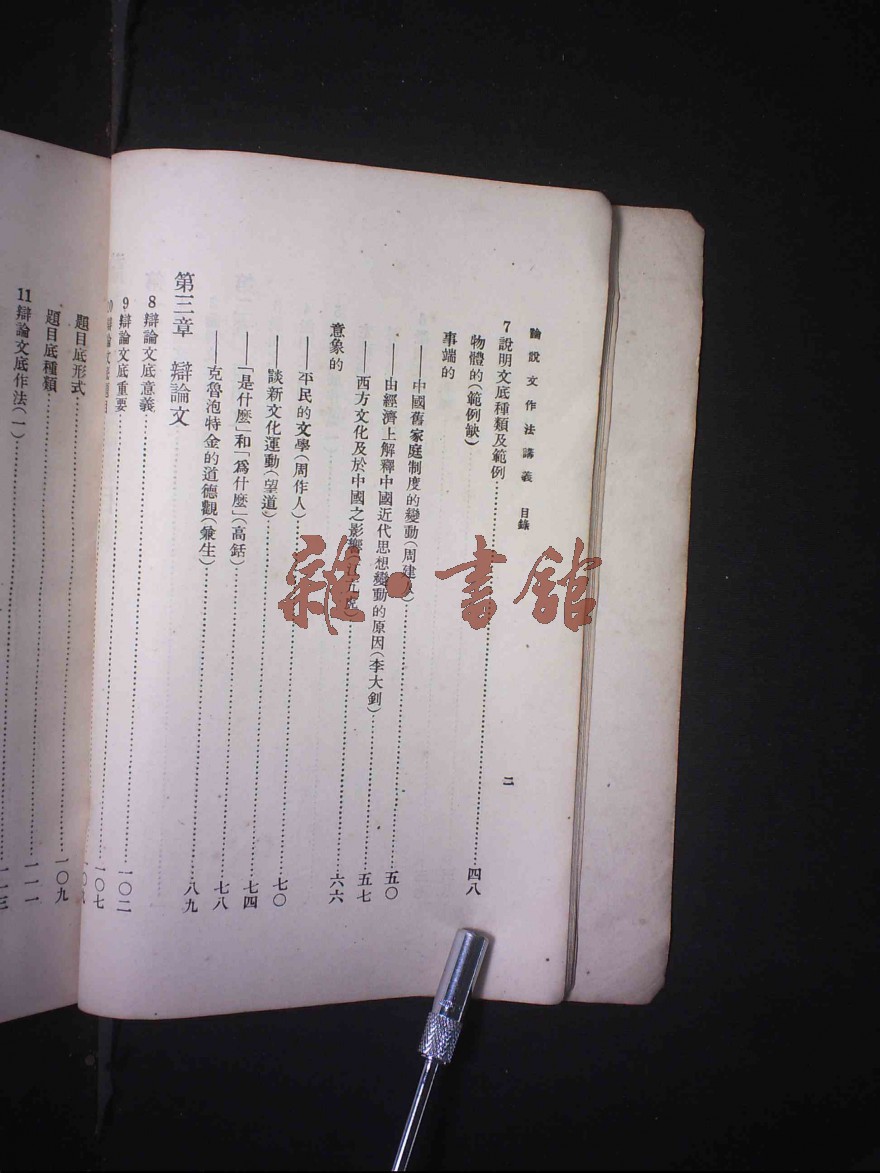 論說文作法講義 目錄
二
7 說明文底種類及範例……四八
物體的(範例缺)
事端的
——中國舊家庭制度的變動(周建)……五〇
——由經濟上解釋中國近代思想變動的原因(李大釗)……五七
——西方文化及於中國之影響……六六
意象的
——平民的文學(周作人)……七〇
——談新文化運動(望道)……七四
——「是什麼」和「爲什麼」(高銛)……七八
——克魯泡特金的道德觀(兼生)……八九
第三章 辯論文
8 辯論文底意義……一〇二
9 辯論文底重要……一〇七
10 辯論文底題目
題目底形式……一〇九
題目底種類……一一一
11 辯論文底作法(一)……一一三
雜·書館